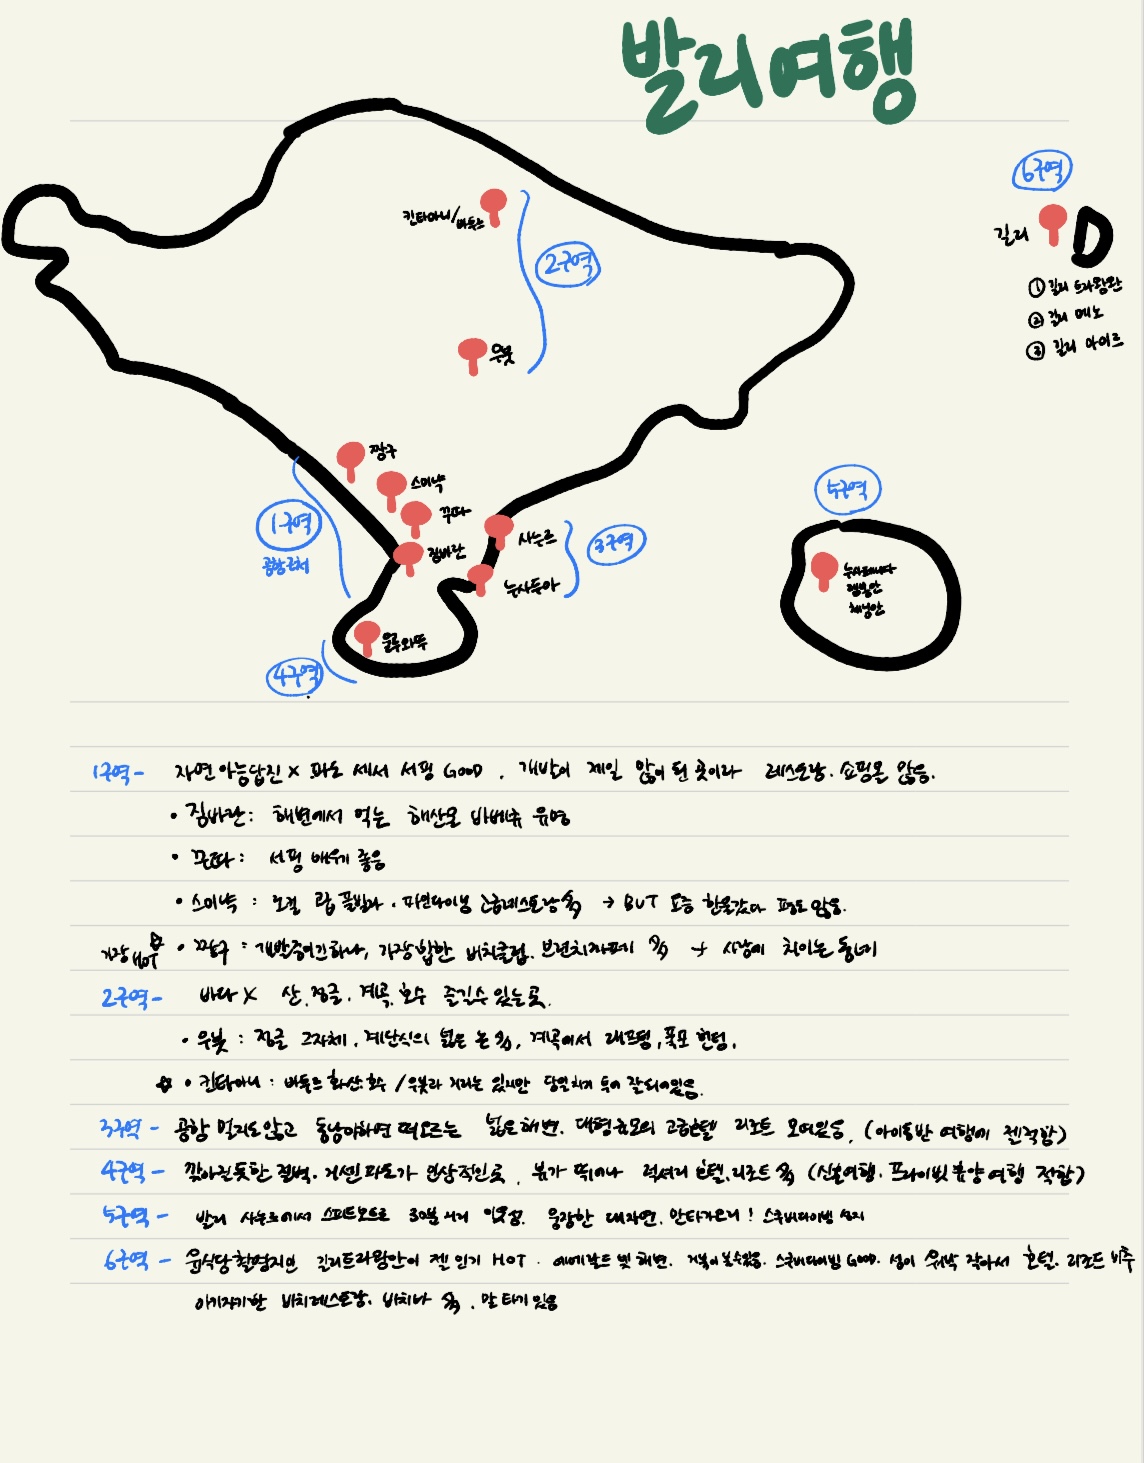 발리여행
6구역
길리
① 길리 트라왕안
② 길리 메노
③ 길리 아이르
킨타마니/
바뚜르
2구역
우붓
짱구
스미냑
꾸따
짐바란
1구역
공항근처
사누르
누사두아
3구역
울루와뚜
4구역
5구역
누사페니다
렘봉안
체닝안
1구역 - 자연 아름답진 X 파도 세서 서핑 GOOD. 개발이 제일 많이 된 곳이라 레스토랑. 쇼핑몰 많음.
• 짐바란: 해변에서 먹는 해산물 바베큐 유명
• 꾸따: 서핑 배우기 좋음
• 스미냑: 호텔 급 풀빌라. 파인다이닝 고급레스토랑多 → BUT 요즘 한물갔다 평도 많음.
가장 ☆ • 짱구: 개발중이긴하나, 가장 합한 비치클럽. 브런치카페 多 → 사랑이 치이는 동네
2구역 - 바다 X 산. 정글. 계곡. 호수 즐길수 있는 곳.
• 우붓: 정글 그자체. 계단식의 넓은 논 多, 계곡에서 래프팅, 폭포 헌팅.
☆ • 킨타마니: 바뚜르 화산호수 / 우붓과 거리는 있지만 당일치기 투어 잘되어있음.
3구역 - 공항 멀지도 않고 동남아하면 떠오르는 넓은 해변. 대형규모의 고급호텔 리조트 모여있음. (아이동반 여행에 젤적합)
4구역 - 깎아질듯한 절벽. 거센 파도가 인상적인곳. 뷰가 뛰어나 럭셔리 호텔. 리조트 多 (신혼여행. 프라이빗 휴양여행 적합)
5구역 - 발리 사누르에서 스피드보트로 30분 거리 있음. 웅장한 대자연. 만타가오리! 스쿠버다이빙 성지
6구역 - 윤식당 촬영지인 길리트라왕안이 젤 인기 HOT. 에메랄드 빛 해변. 거북이 볼수있음. 스쿠버다이빙 GOOD. 섬이 워낙 작아서 호텔. 리조트 비추
아기자기한 비치레스토랑. 비치바 多. 말 타기 있음